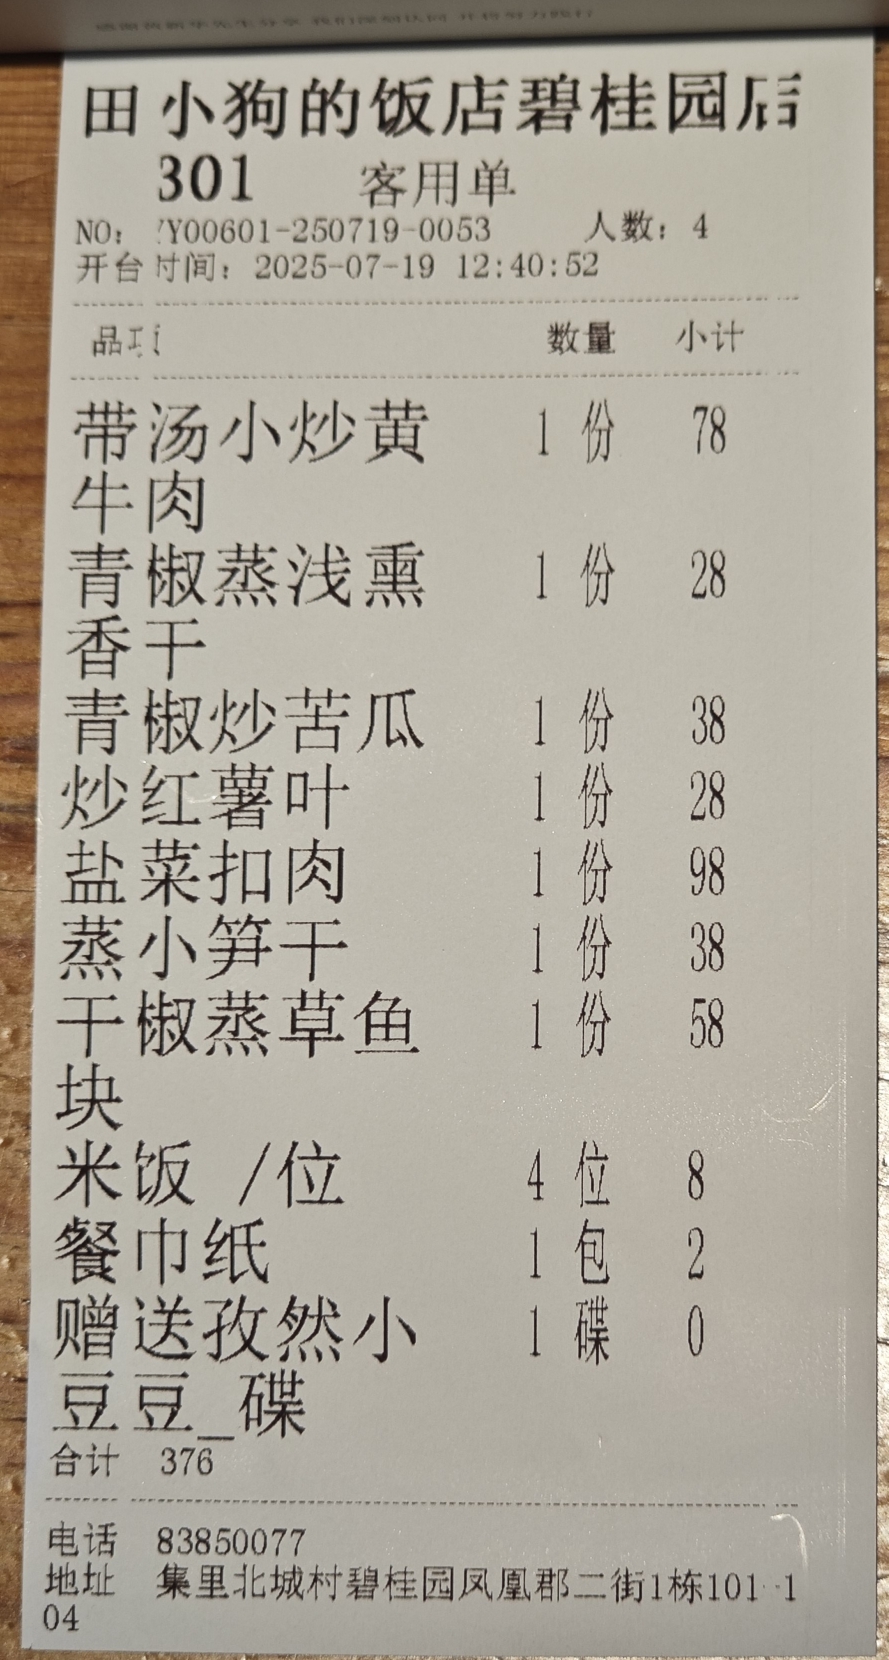 田小狗的饭店碧桂园店
301 客用单
NO: YY00601-250719-0053 人数: 4
开台时间: 2025-07-19 12:40:52
品项 数量 小计
带汤小炒黄 1 份 78
牛肉
青椒蒸浅熏 1 份 28
香干
青椒炒苦瓜 1 份 38
炒红薯叶 1 份 28
盐菜扣肉 1 份 98
蒸小笋干 1 份 38
干椒蒸草鱼 1 份 58
块
米饭 /位 4 位 8
餐巾纸 1 包 2
赠送孜然小 1 碟 0
豆豆_碟
合计 376
电话 83850077
地址 集里北城村碧桂园凤凰郡二街1栋101--1
04